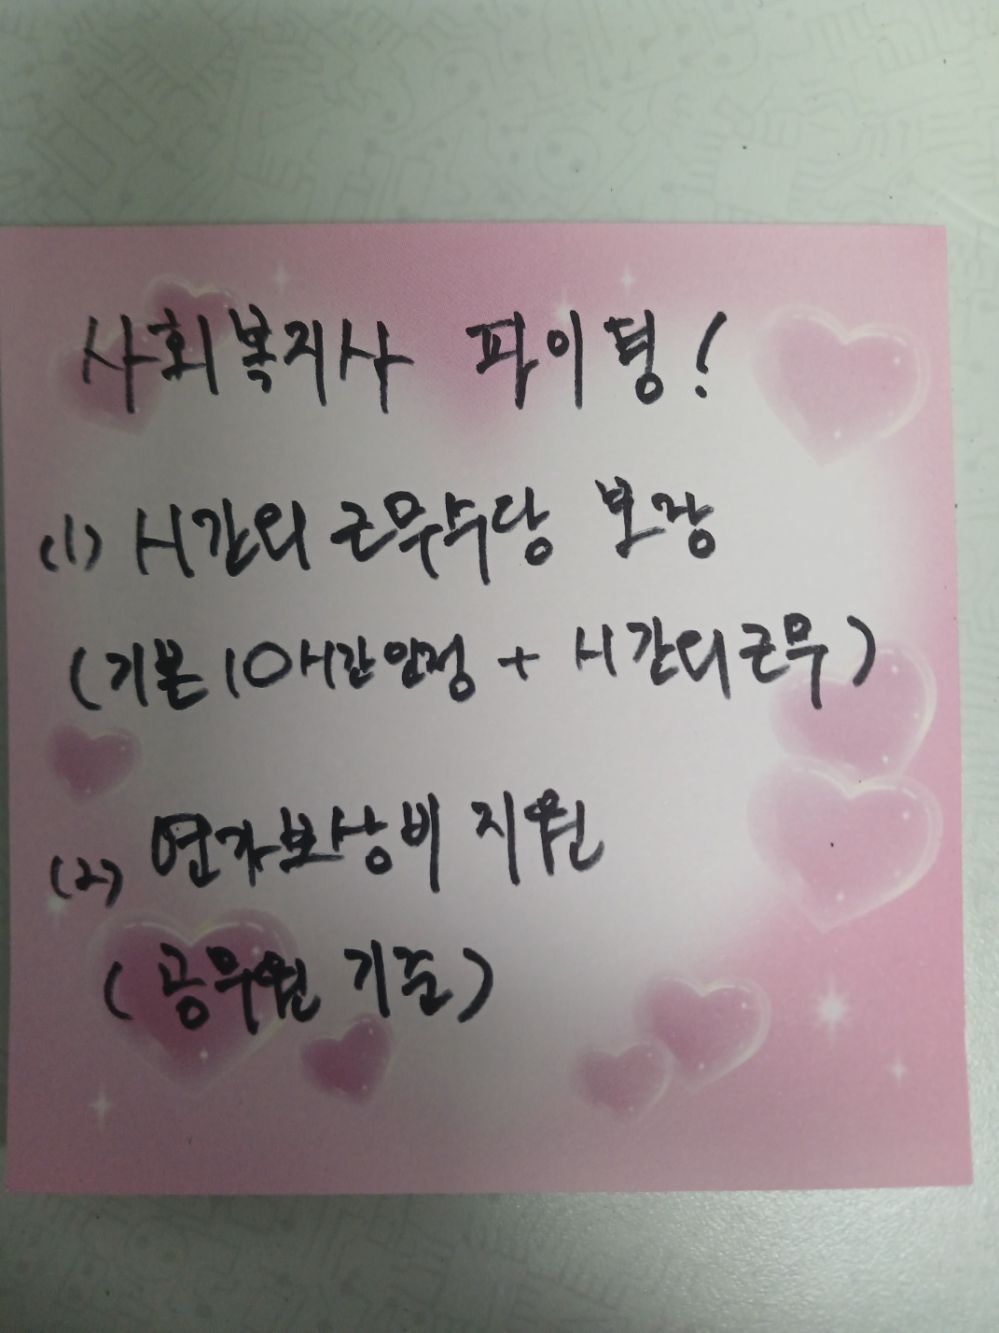 사회복지사 파이텽!
(1) 시간외 근무수당 보장
(기본 10시간 인정 + 시간외 근무)
(2) 연가보상비 지원
(공무원 기준)